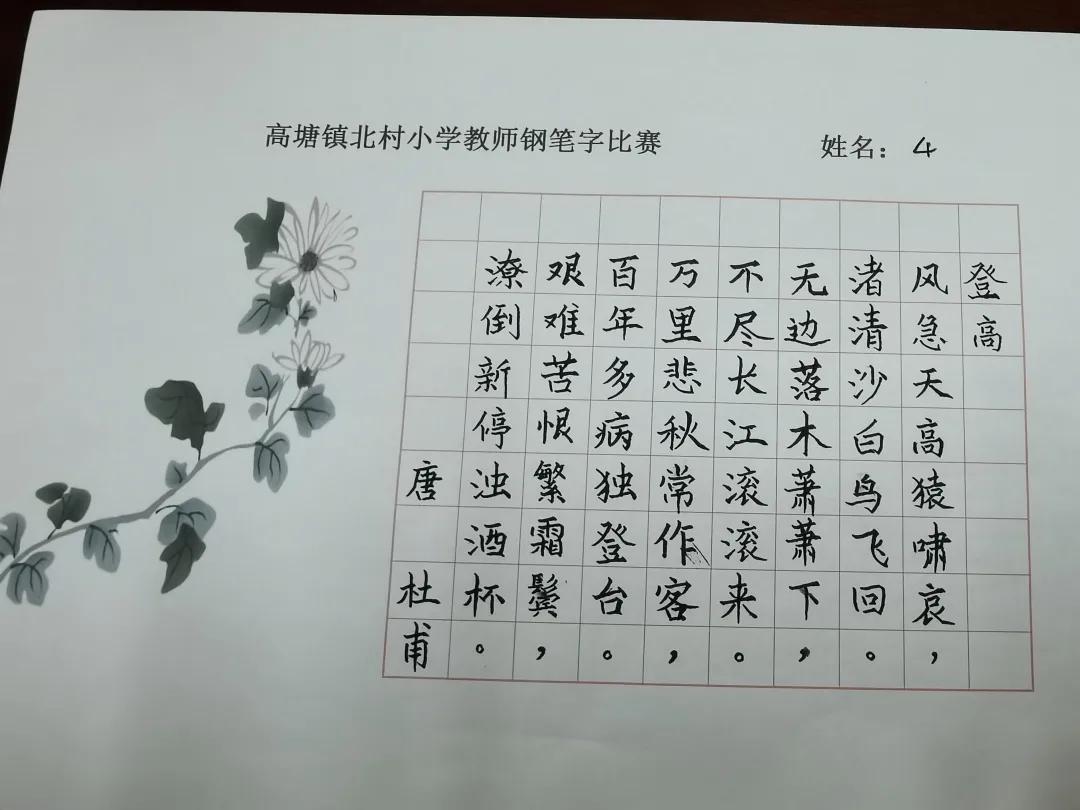 高塘镇北村小学教师钢笔字比赛
姓名：4
登高
风急天高猿啸哀，
渚清沙白鸟飞回。
无边落木萧萧下，
不尽长江滚滚来。
万里悲秋常作客，
百年多病独登台。
艰难苦恨繁霜鬓，
潦倒新停浊酒杯。
唐 杜甫